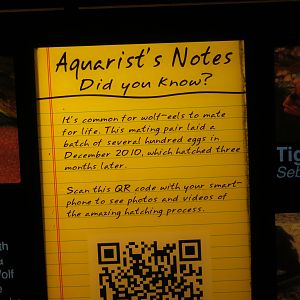 Aquarist's Notes
Did you know?
It's common for wolf-eels to mate
for life. This mating pair laid a
batch of several hundred eggs in
December 2010, which hatched three
months later.
Scan this QR code with your smart-
phone to see photos and videos of
the amazing hatching process.
Tig
Seb
th
a
Wolf
e